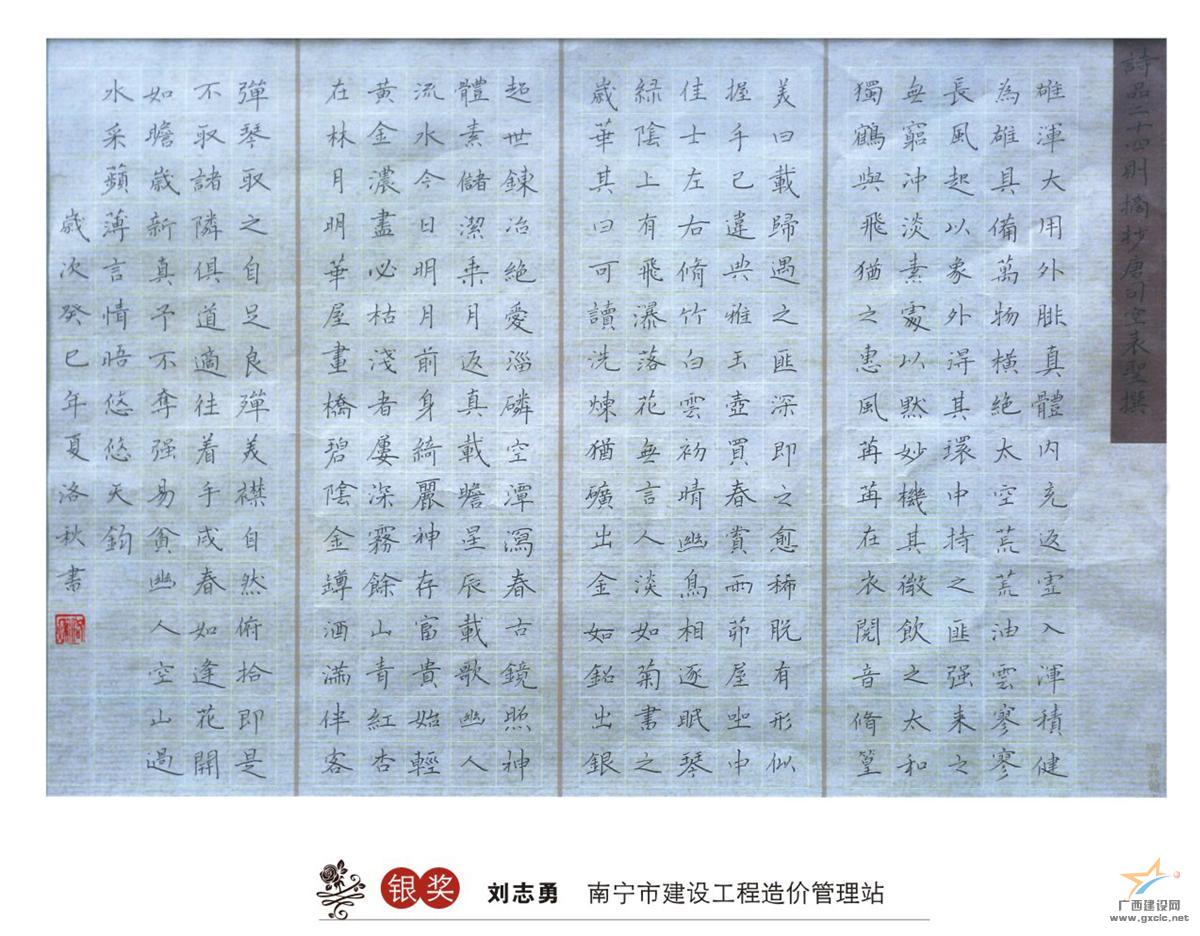 詩品二十四則摘抄唐司空表聖撰
雄渾大用外腓真體內充返虛入渾積健
為雄具備萬物橫絕太空荒荒油雲寥寥
長風起以象外得其環中持之匪强来之
無窮冲淡素處以默妙機其微飲之太和
獨鶴與飛猶之惠風苒苒在衣閱音脩篁
美曰載歸遇之匪深即之愈稀脱有形似
握手已違典雅玉壺買春賞雨茆屋坐中
佳士左右脩竹白雲初晴幽鳥相逐眠琴
緑陰上有飛瀑落花無言人淡如菊書之
歲華其曰可讀洗煉猶礦出金如鉛出銀
超世錬冶絶愛淄磷空潭瀉春古鏡照神
體素儲潔乘月返真載瞻星辰載歌幽人
流水今日明月前身綺麗神存富貴始輕
黄金濃盡必枯淺者屢深霧餘山青紅杏
在林月明華屋畫橋碧陰金罇酒滿伴客
彈琴取之自足良殫美襟自然俯拾即是
不取諸隣俱道適往着手成春如逢花開
如瞻歲新真予不奪强易貧幽人空山過
水采蘋薄言情悟悠悠天鈞
歲次癸巳年夏洛秋書
银奖 刘志勇 南宁市建设工程造价管理站
广西建设网
www.gxcic.net